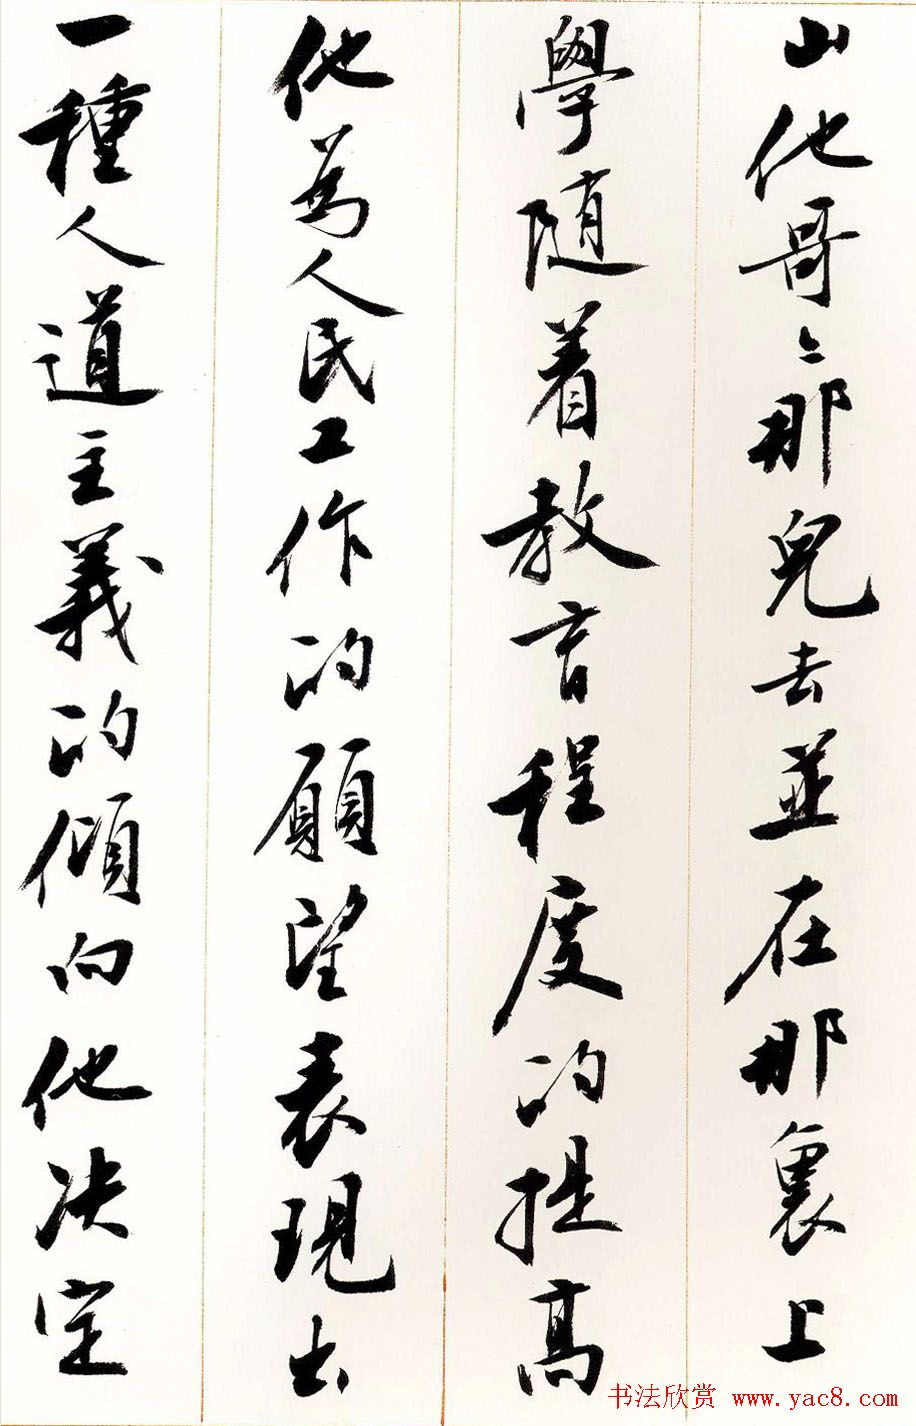 山他哥々那兒去並在那裏上
學随着教育程度的提高
他為人民工作的願望表現出
一種人道主義的傾向他决定
书法欣赏 www.yac8.com